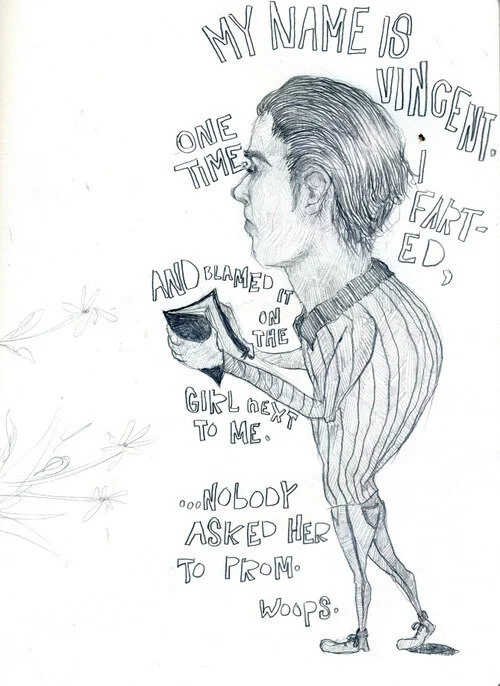 MY NAME IS
VINCENT.
ONE
TIME
I
FART-
ED,
AND BLAMED IT
ON
THE
GIRL NEXT
TO ME.
...NOBODY
ASKED HER
TO PROM.
WOOPS.